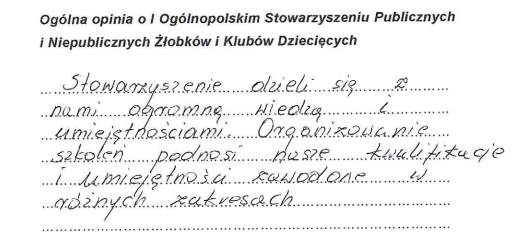 Ogólna opinia o I Ogólnopolskim Stowarzyszeniu Publicznych
i Niepublicznych Żłobków i Klubów Dziecięcych
Stowarzyszenie dzieli się z
nami ogromną wiedzą i
umiejętnościami. Organizowanie
szkoleń podnosi nasze kwalifikacje
i umiejętności zawodone w
różnych zakresach